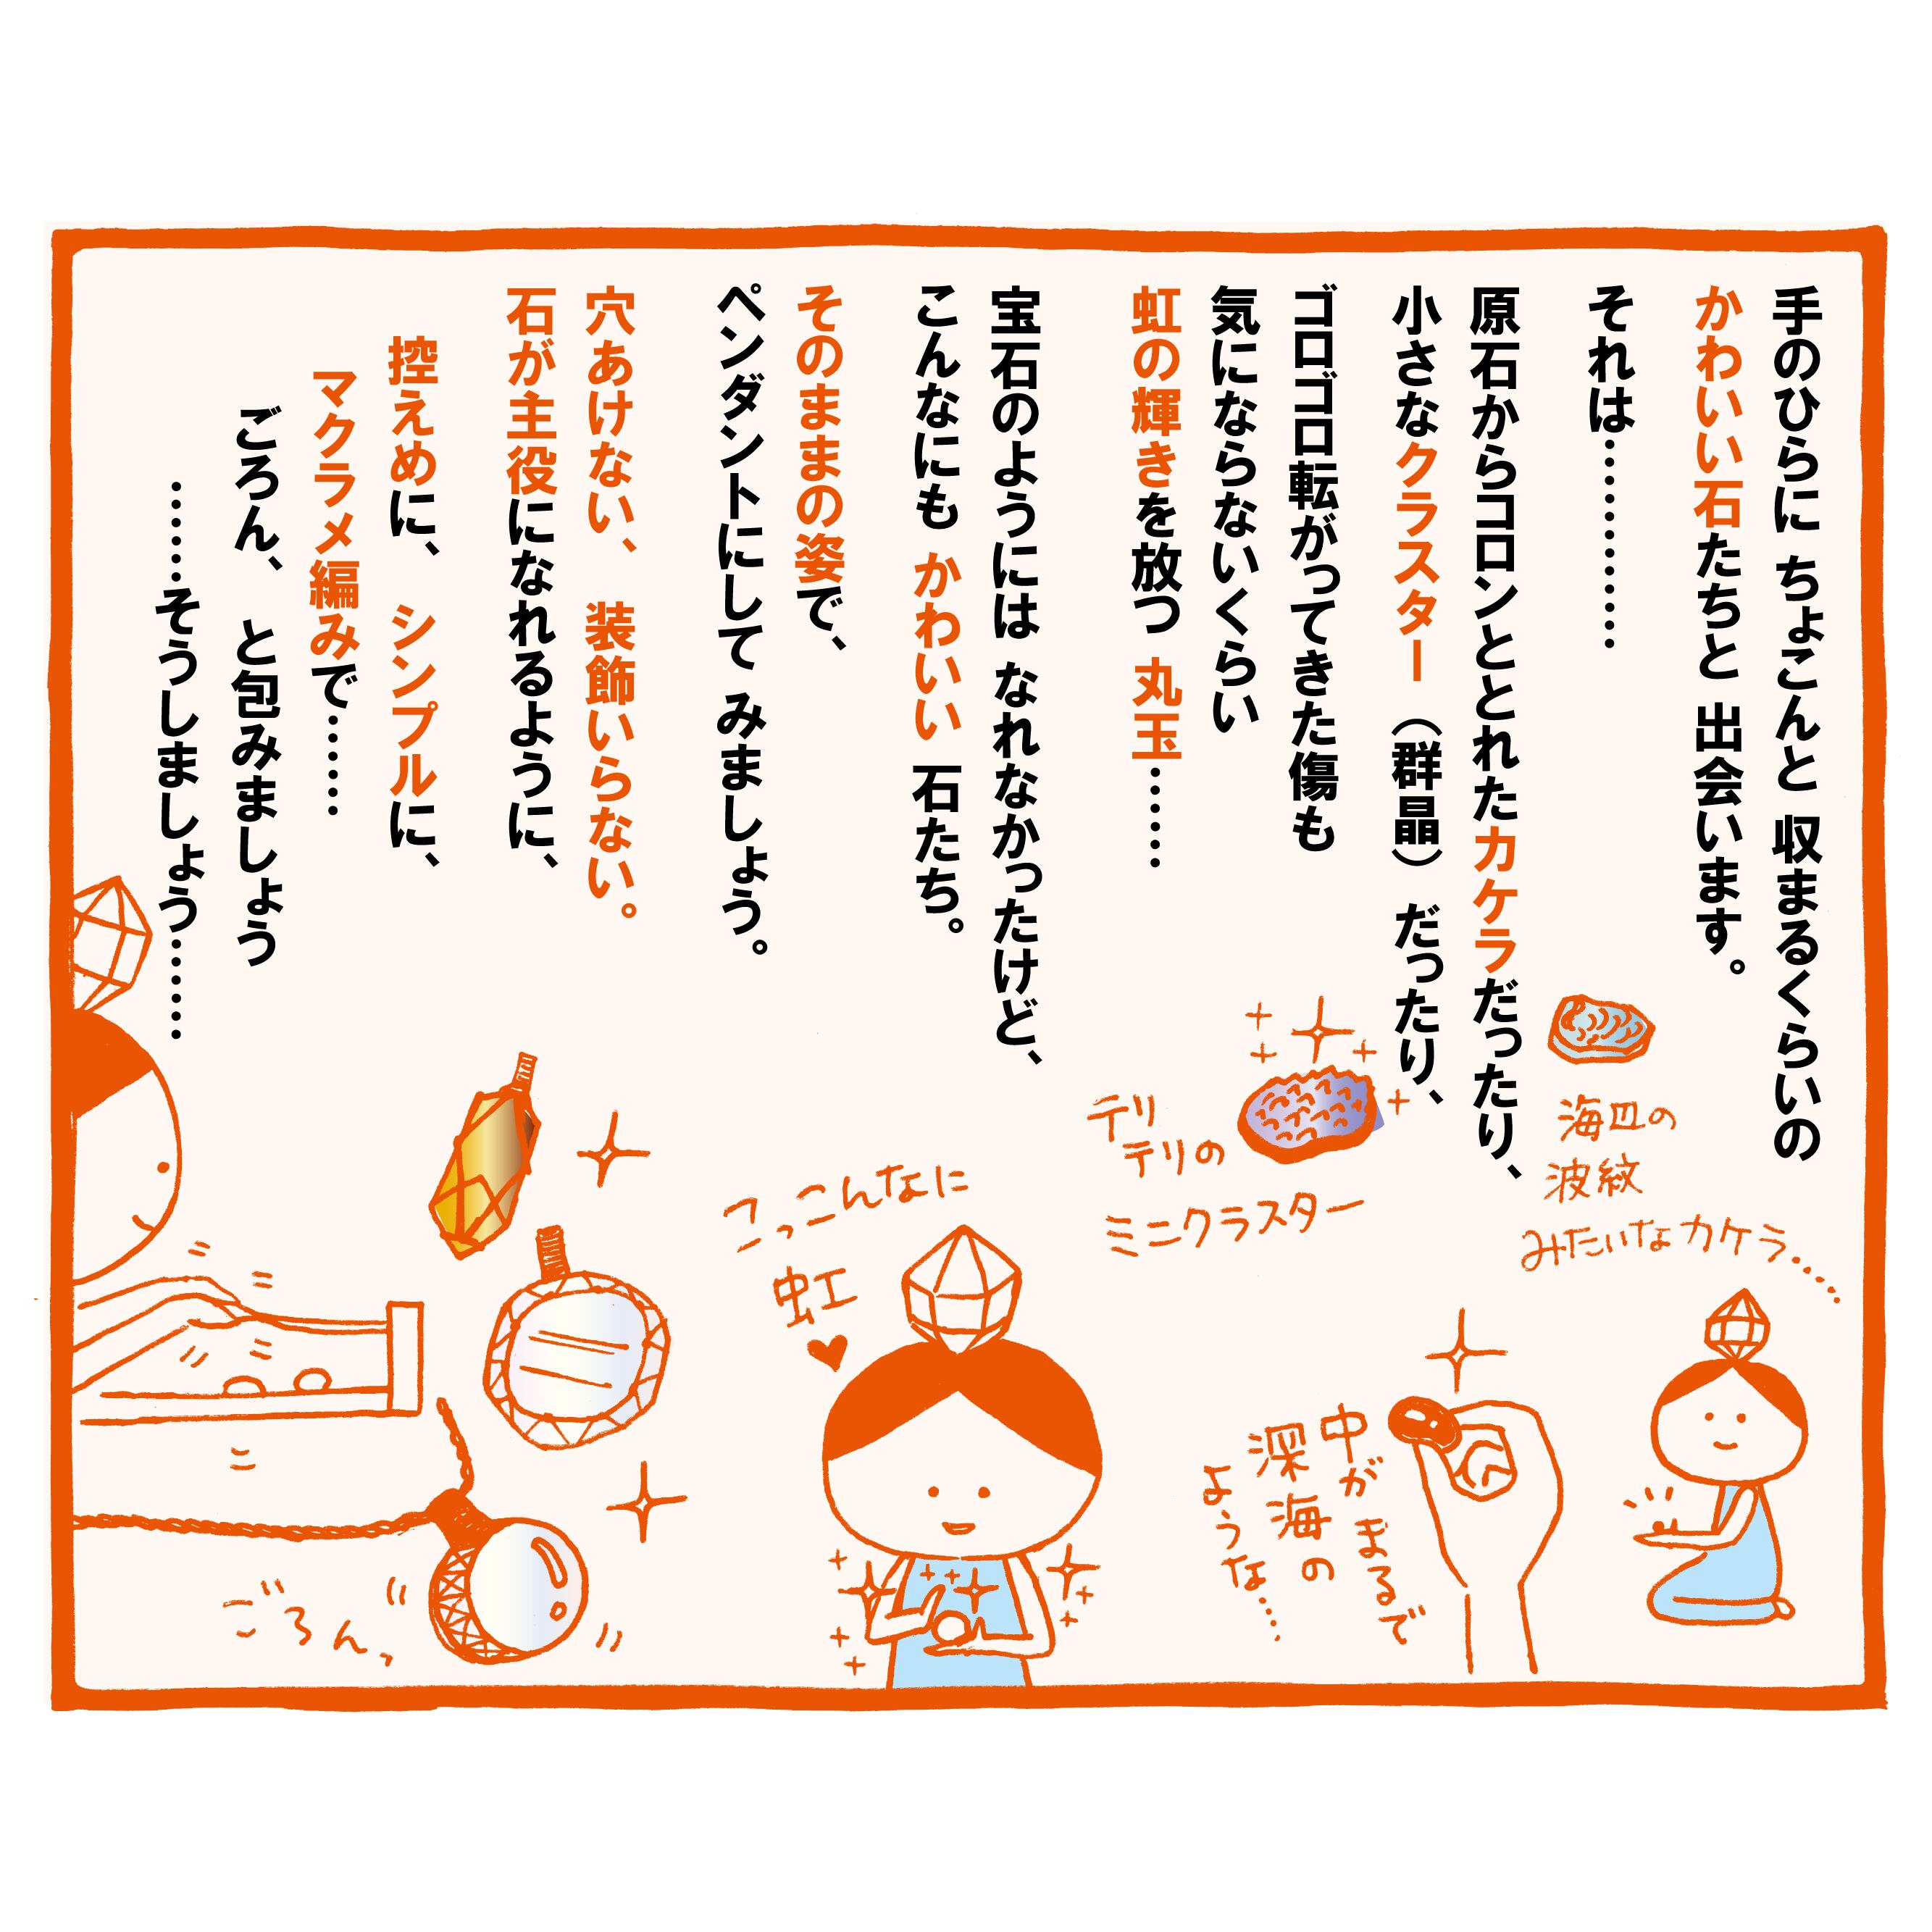 手のひらに ちょこんと 収まるくらいの
かわいい石たちと 出会います。
それは…………
原石からコロンととれたカケラだったり、
小さなクラスター（群晶）だったり、
ゴロゴロ転がってきた傷も
気にならないくらい
虹の輝きを放つ 丸玉……
宝石のようには なれなかったけど、
こんなにも かわいい 石たち。
そのままの姿で、
ペンダントにして みましょう。
穴あけない、装飾いらない。
石が主役になれるように、
控えめに、シンプルに、
マクラメ編みで……
ごろん、と包みましょう
……そうしましょう……
海辺の
波紋
みたいなカケラ……
テリ
テリの
ミニクラスター
中がまるで
深海の
ような…
こっこんなに
虹
ごろんっ